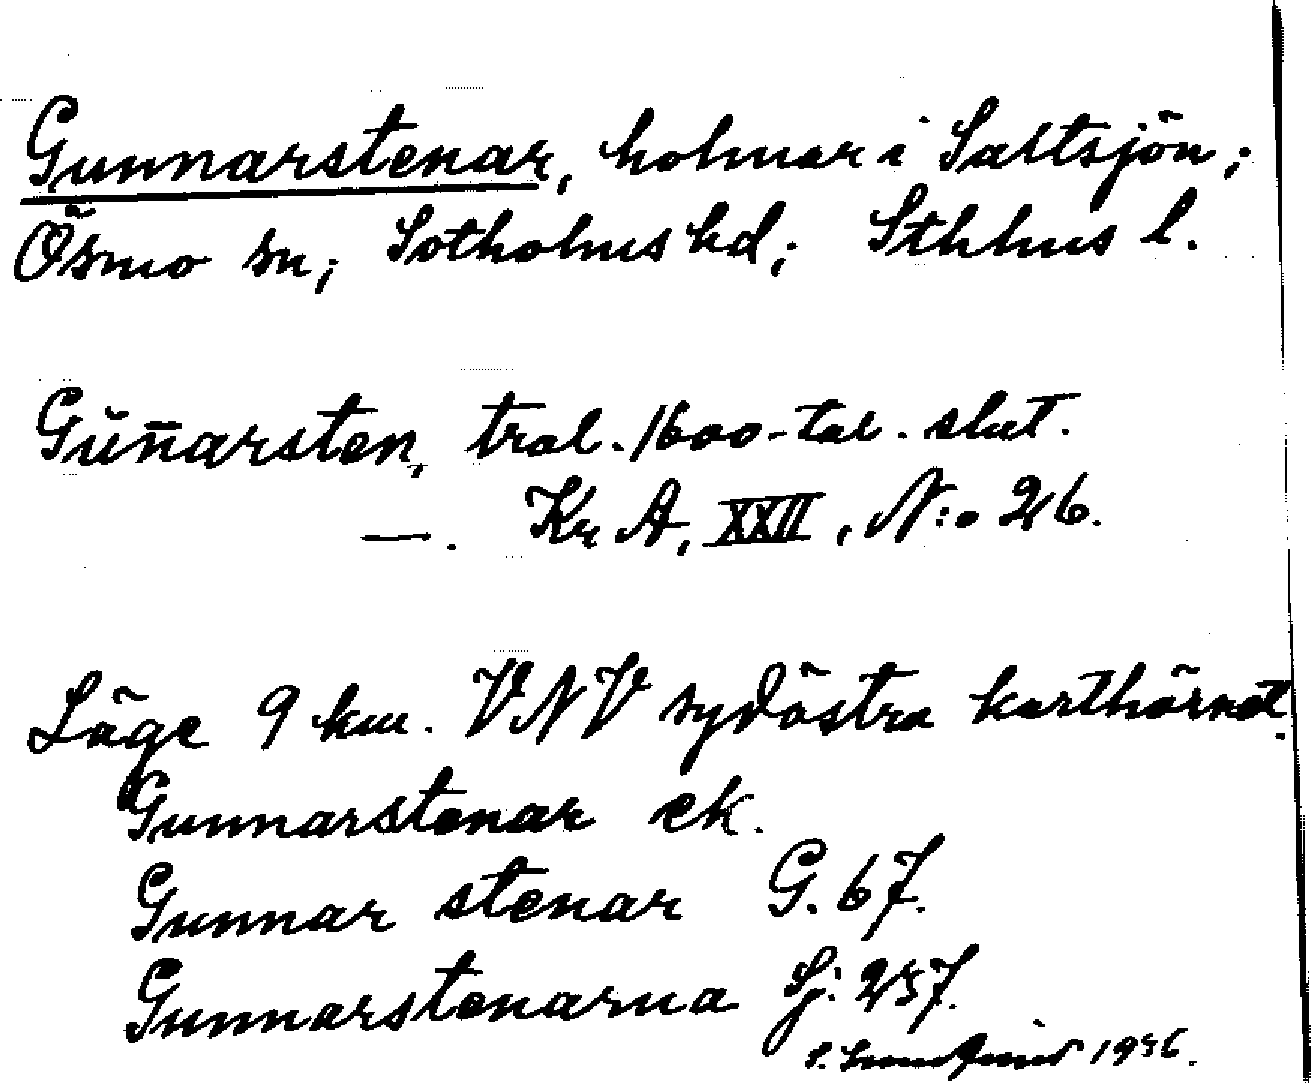 Gunnarstenar, holmar i Saltsjön;
Ösmo sn; Sotholms hd; Sthlms l.
Guñarsten, trol. 1600-tal. slut.
—. Kr A, XXII, N:o 26.
Läge 9 km. VNV sydöstra karthörnet.
Gunnarstenar ek.
Gunnar stenar G. 67.
Gunnarstenarna Sj. 257.
1936.